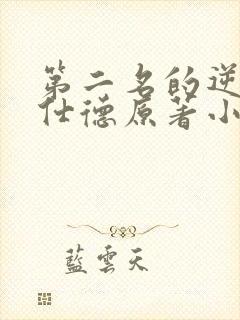 第二名的逆
仕德原著小
藍雲天